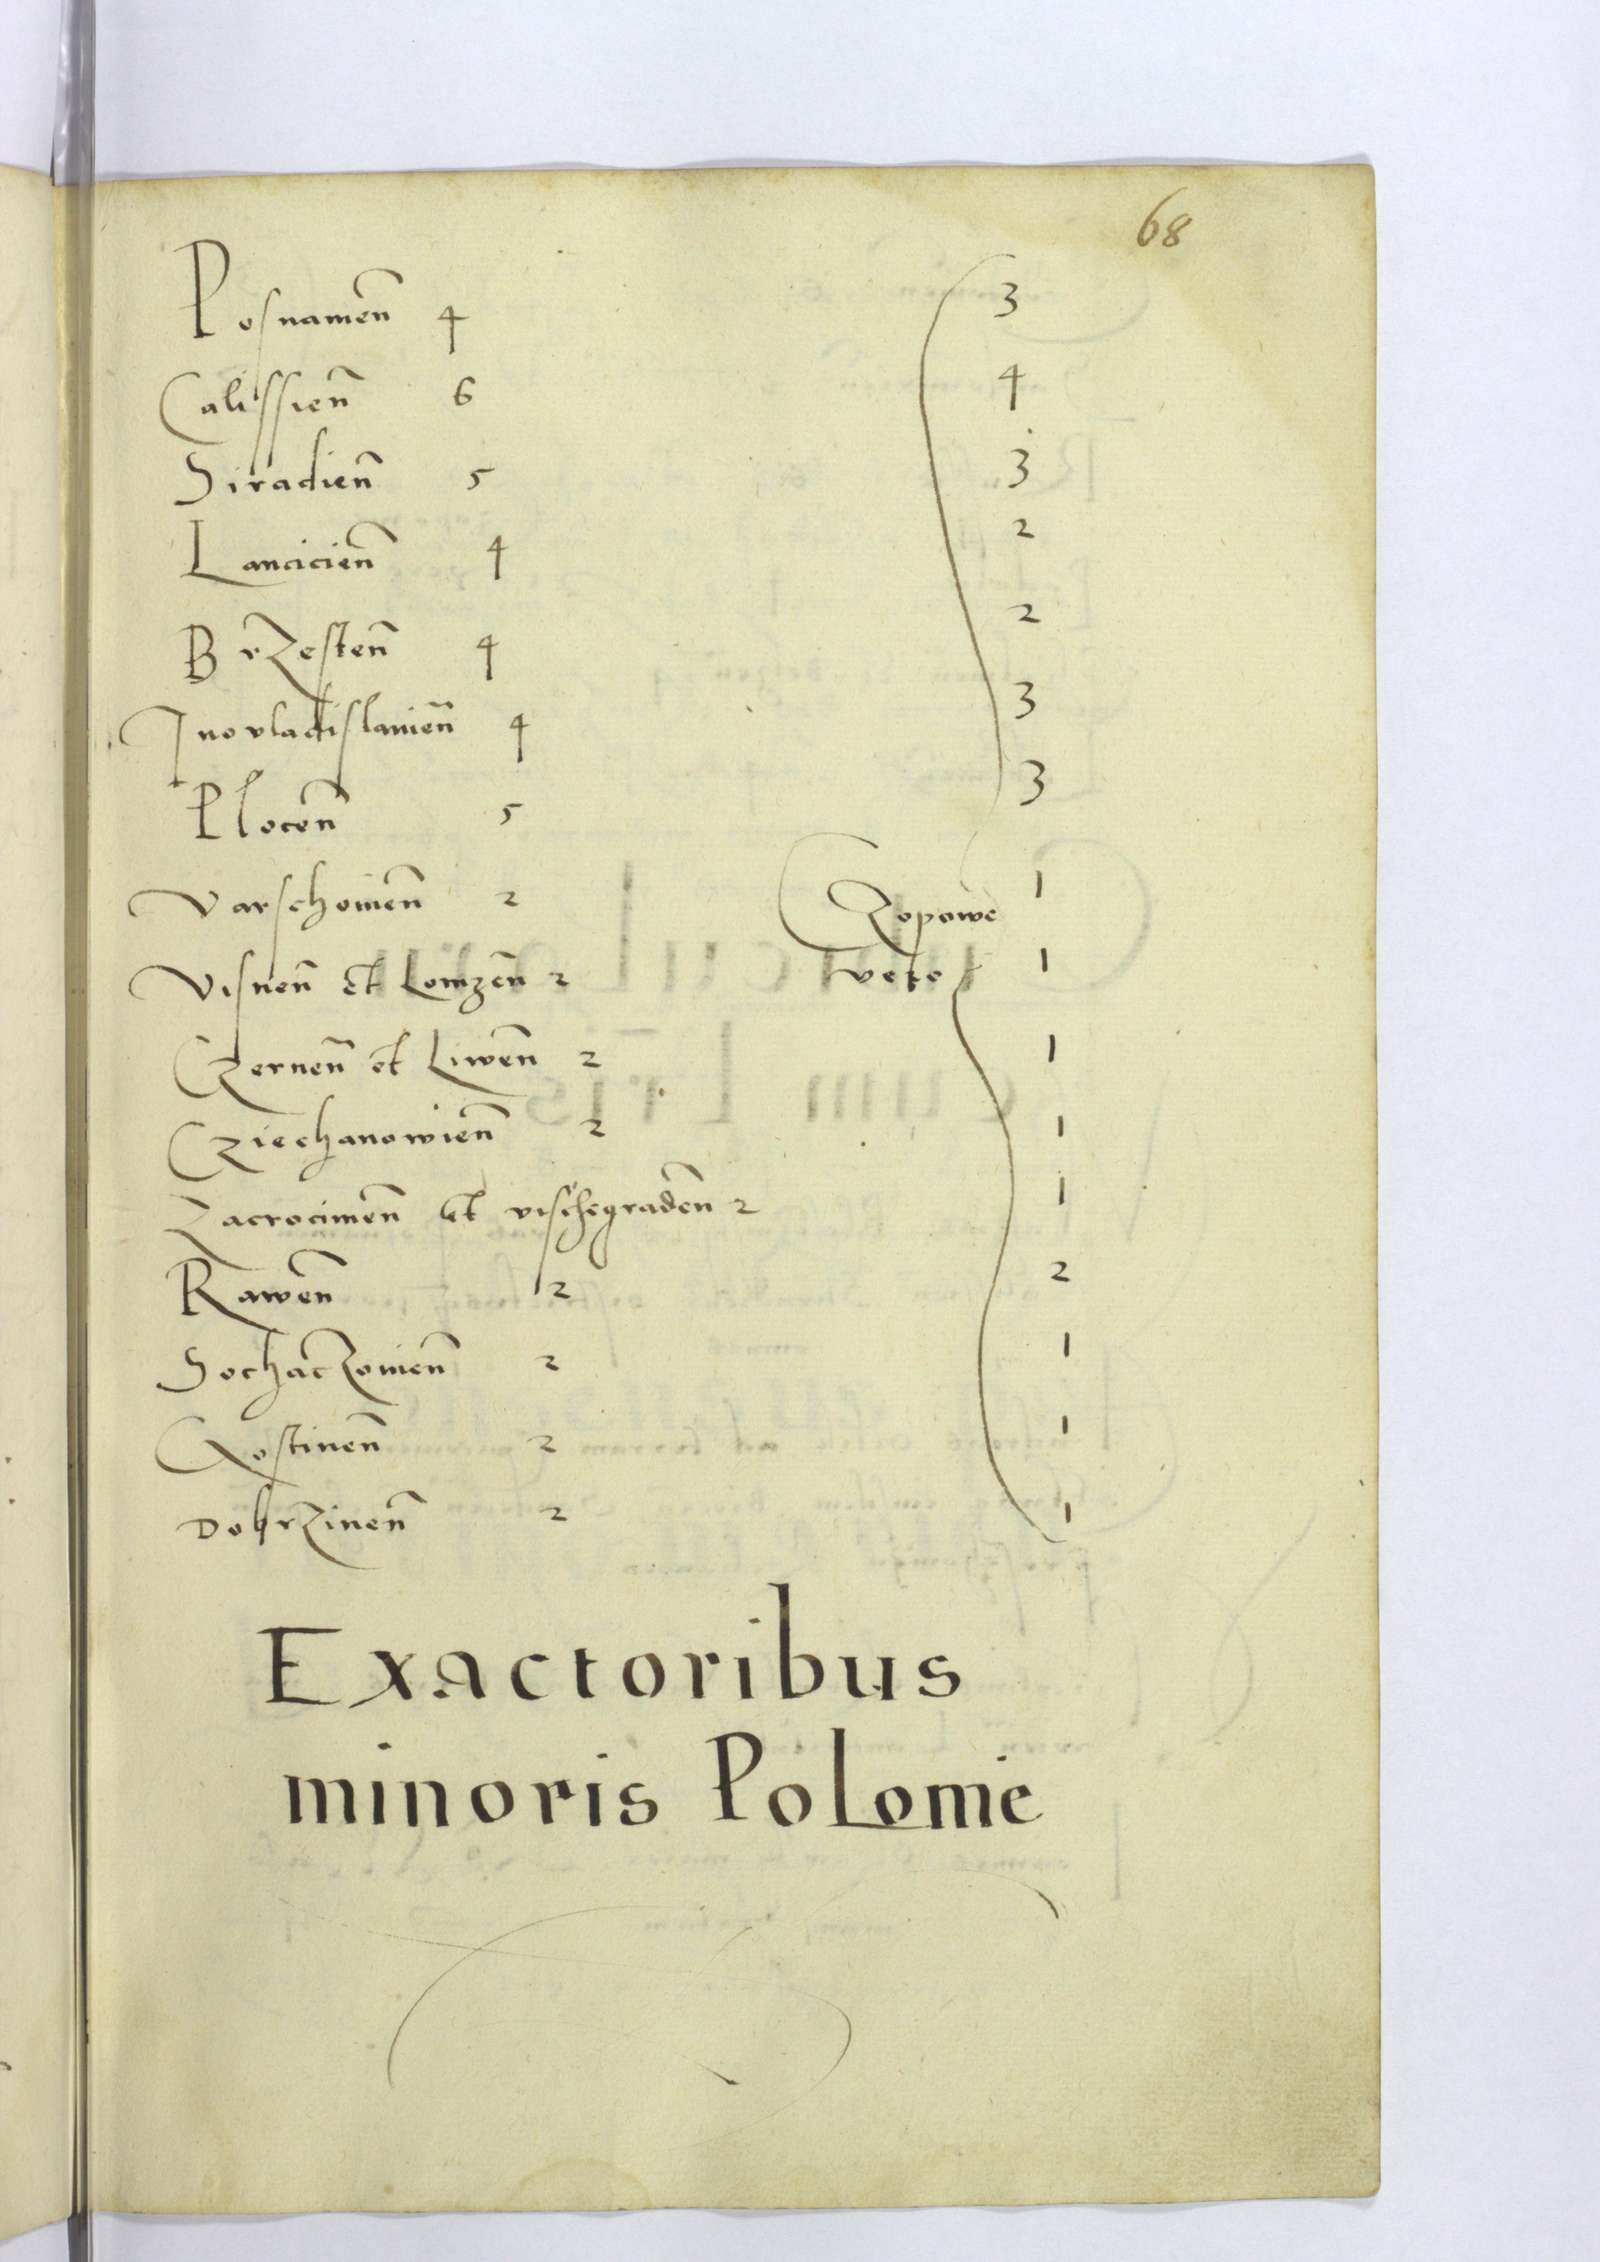 68
Posnanien̄ 4 3
Calissien̄ 6 4
Siradien̄ 5 3
Lancicien̄ 4 2
Brzesten̄ 4 2
Inovladislauien̄ 4 3
Plocen̄ 5 3
Varschouien̄ 2 1
Czopowe
Visnen̄ et Lomzen̄ 2 1
vete
Czernen̄ et Liwen̄ 2 1
Cziechanowien̄ 2 1
Zacrocimen̄ et vischegraden̄ 2 1
Rawen̄ 2 2
Sochaczouien̄ 2 1
Gostinen̄ 2 1
Dobrzinen̄ 2 1
Exactoribus
minoris Polonie